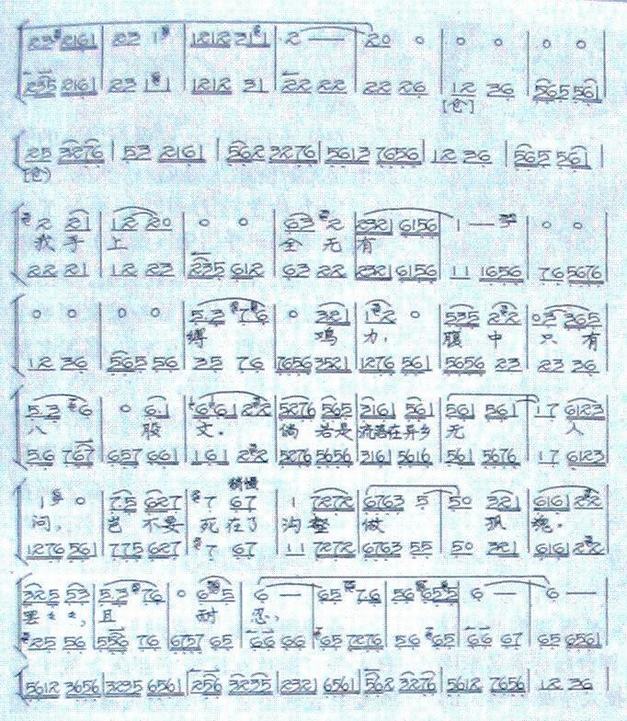 235 2161 | 23 1 | 1212 31 | 2 — | 20 0 | 0 0 | 0 0
235 2161 | 23 11 | 1212 31 | 22 22 | 22 26 | 12 36 | 565 561
[仓]
25 3276 | 53 2161 | 562 3276 | 5613 7656 | 12 36 | 565 561
[仓]
2 21 | 12 20 | 0 0 | 63 2 | 2321 6156 | 1 — | 0 0
我 手 上 全 无 有
22 21 | 12 23 | 235 612 | 63 22 | 2321 6156 | 11 1656 | 76 5676
0 0 | 0 0 | 5.3 76 | 0 321 | 12 0 | 535 22 | 03 365
缚 鸡 力, 腹 中 只 有
12 36 | 565 56 | 35 76 | 7656 3521 | 1276 561 | 5656 23 | 23 36
5.3 6 | 0 61 | 6661 22 | 5276 565 | 3161 561 | 561 561 | 17 6123
八 股 文. 倘 若是 流落在异乡 无 人
56 767 | 657 661 | 161 22 | 5276 5656 | 3161 5616 | 561 5676 | 17 6123
稍慢
1 0 | 75 627 | 7 67 | 1 7272 | 6763 5 | 50 321 | 6161 22
问, 岂 不要 死 在了 沟 壑 做 孤 魂.
1276 561 | 775 627 | 7 67 | 11 7272 | 6763 55 | 50 321 | 6161 22
325 53 | 5.3 76 | 0 6 5 | 6 — | 65 76 | 56 655 | 6 — | 6 —
且 耐 忍,
25 56 | 556 76 | 6757 65 | 66 66 | 65 7276 | 56 65 | 66 67 | 65 6561
5612 3656 | 3235 6561 | 256 3235 | 2321 6561 | 562 3276 | 5612 7656 | 12 36